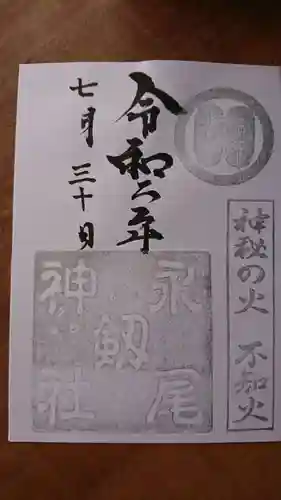 神秘の火 不知火
令和六年
七月三十日
永尾
剱
神社